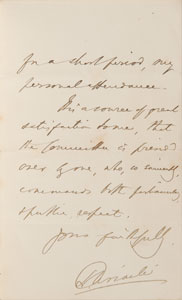 for a short period, my
personal attendance.
It is a source of great
satisfaction to me, that
the Committee is presided
over by one, who, so eminently,
commands both parliamentary
& public respect.
Yours faithfully,
Disraeli